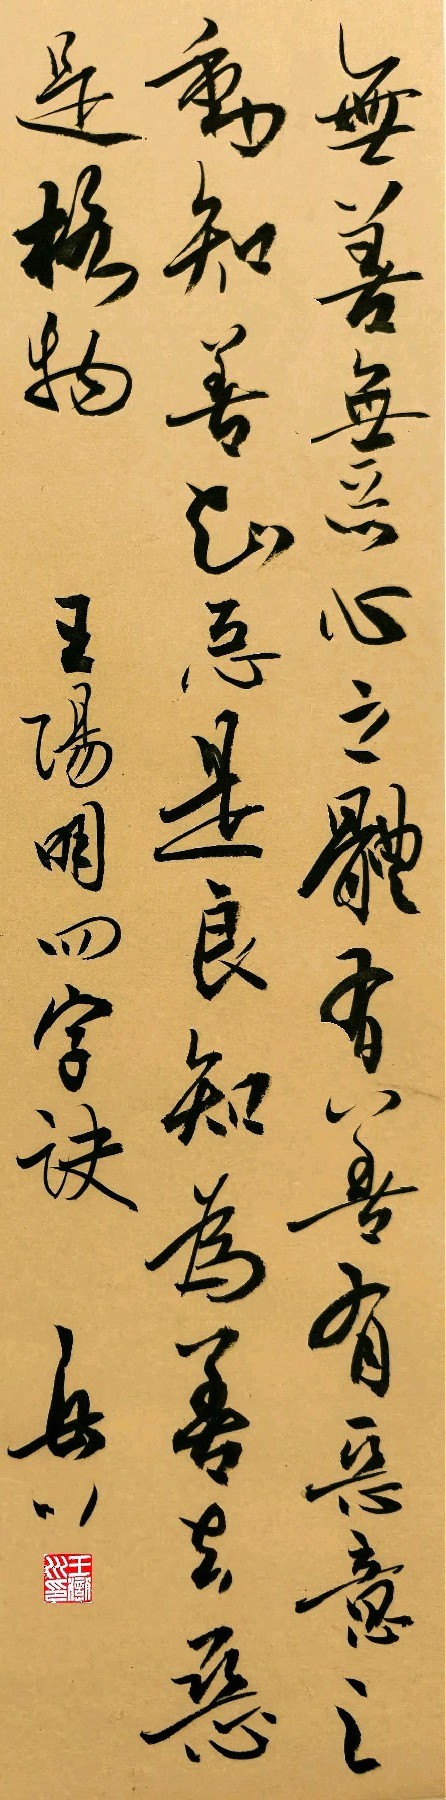 無善無惡心之體有善有惡意之
動知善知惡是良知為善去惡
是格物
王陽明四字訣